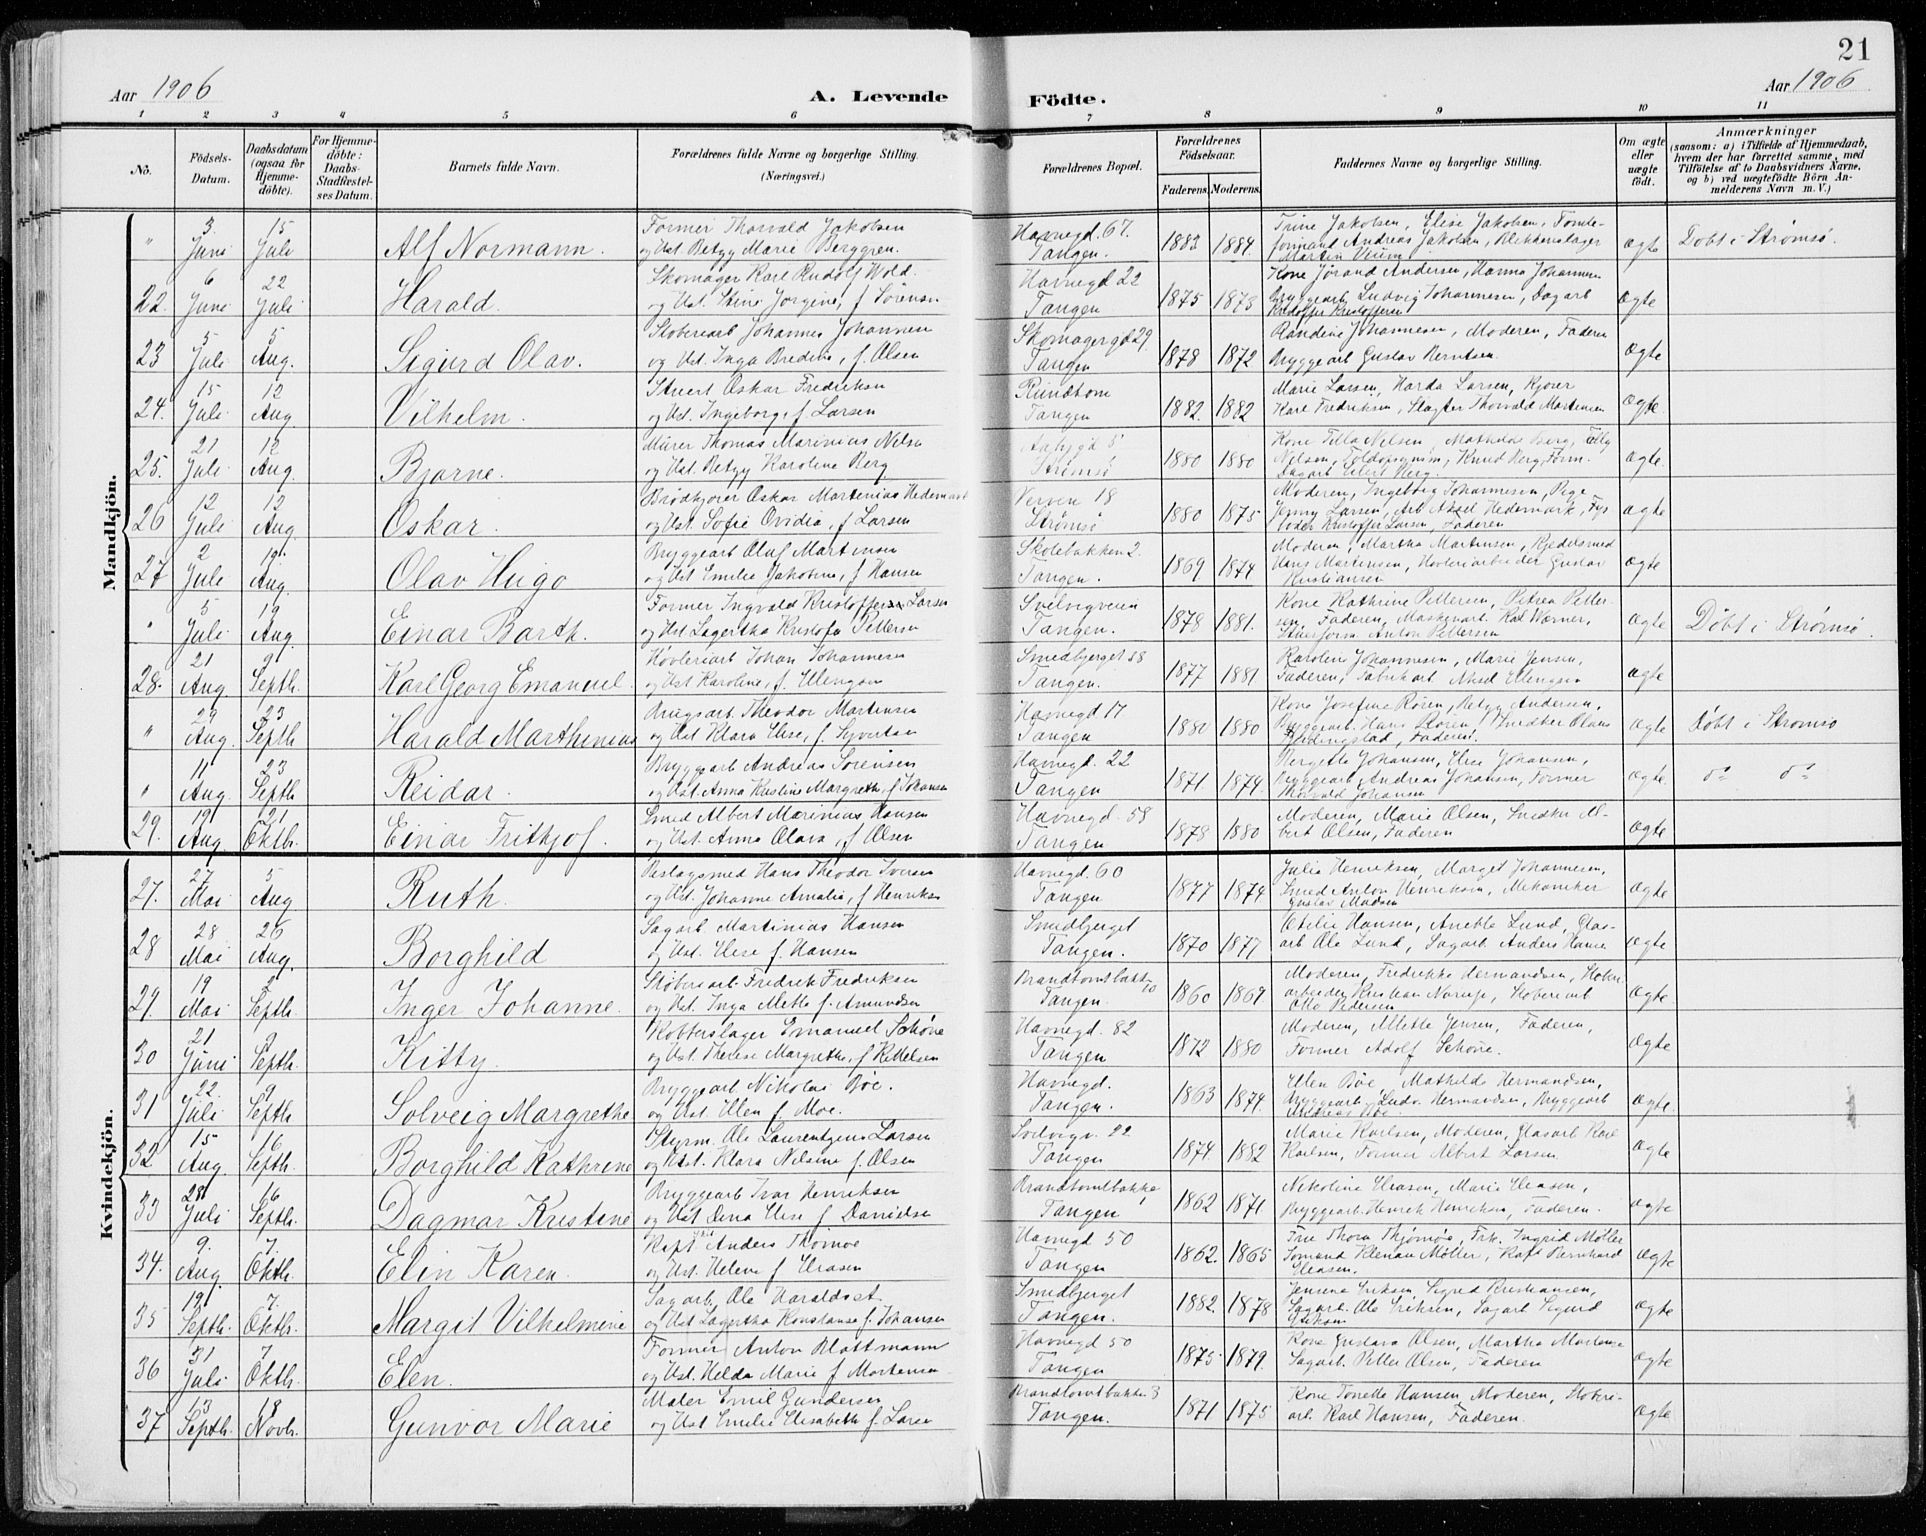 21
Aar 1906
A. Levende Födte.
Aar 1906
1 2 3 4 5 6 7 8 9 10 11
No. Födsels-Datum. Daabsdatum (ogsaa for Hjemme-döbte). For Hjemme-döbte: Daabs-Stadfæstel-ses Datum. Barnets fulde Navn. Forældrenes fulde Navne og borgerlige Stilling. (Næringsvei.) Forældrenes Bopæl. Forældrenes Födselsaar. Faderens. Moderens. Faddernes Navne og borgerlige Stilling. Om ægte eller uægte födt. Anmærkninger (saasom: a) i Tilfælde af Hjemmedaab, hvem der har forrettet samme, med Tilföielse af to Daabsvidners Navne, og b) ved uægtefödte Börn An-melderens Navn m. V.)
Mandkjön.
" 3. Juni 15 Juli Alf Normann. Former Thorvald Jakobsen og Ust. Betzy Marie Berggren. Havnegd. 67. Tangen. 1883 1884. Trine Jakobsen, Elise Jakobsen, Tomte-formand Andreas Jakobsen, Blikkenslager Martin ægte Döbt i Strömsö.
22. 6 Juni 22 Juli Harald. Skomager Karl Rudolf Wold og Ust. Stine Jorgine, f Sörensen Havnegd 22 Tangen 1875 1873 Kone Jörand Andersen, Hanna Johannesen Bryggearb Ludvig Johannesen, Dagarb Kristoffer Kristoffersen ægte
23 5 Juli 5 Aug. Sigurd Olav. Stöberiarb Johannes Johannesen og Ust. Inga Bredine, f. Olsen Skomagergd 29. Tangen 1878 1872 Randine Johannesen, Moderen, Faderen Bryggearb Gustav Berntsen. ægte
24. 15 Juli 12 Aug Vilhelm. Stuert Oskar Fredriksen og Ust. Ingeborg, f Larsen Rundtom Tangen 1882. 1882 Marie Larsen, Harda Larsen, Kjörer Karl Fredriksen, Slagter Thorvald Martinsen ægte
25. 21 Juli 12 Aug Bjarne. Murer Thomas Marinius Nilsen og Ust. Betzy Karoline Berg Strömsö 1880 1880 Kone Tilla Nelsen Mathilde Berg, Nelsen, Toldopsynsm, Knud Berg, Form. Dagarb. Eilert Berg. ægte
26 12 Juli 12 Aug. Oskar. Brödkjörer Oskar Martinias Hedemark og Ust. Sofie Ovidia, f Larsen Verven 18 Strömsö 1880 1875 Moderen, Ingeborg Johannesen, Pige Jenny Larsen, Arb Aksel Hedemark, Kristoffer Larsen, Faderen ægte
27 2 Juli 19. Aug. Olav Hugo Bryggearb Oluf Martinsen og Ust Emilie Jakobine, f Hansen Skolebakken 2. Tangen. 1869 1874 Moderen, Martha Martinsen, Kjedelsmed Hans Martinsen, Hövleriarbeider Gustav Kristiansen ægte
" 5 Juli 19 Aug. Einar Barth. Former Ingvald Kristoffer Larsen og Ust. Lagertha Kristofa Pettersen Svelvigveien Tangen. 1878 1881. Kone Kathrine Pettersen, Petrea Petter-sen, Faderen, Maskinarb. Karl Werner, Anton Pettersen ægte Döbt i Strömsö.
28. 21 Aug. 9 Septb. Karl Georg Emanuel. Hövleriarb Johan Johannesen og Ust Karoline, f. Ellengsen Smedbjerget 58 Tangen. 1877 1881 Karoline Johannesen, Marie Jensen, Faderen, Fabrikarb. Aksel Ellingsen ægte
" 29 Aug. 23 Septb Harald Marthinius Brugsarb. Theodor Martinsen og Ust Klara Elise, f. Syvertsen Havnegd 17 Tangen 1880 1880 Kone Josefine Rören, Betzy Andersen, Bryggearb. Hans Rören, Snedker Olaus Faderen. ægte Döbt i Strömsö
" 11 Aug. 23 Septb Reidar. Bryggearb Andreas Sörensen og Ust. Anna Kirstine Margrethe, f Johansen Havnegd. 22 Tangen 1871 1874. Bergitte Johansen, Elise Johansen, Bryggearb Andreas Johansen, Former Thorvald Johansen ægte do do
29. 19 Aug. 21 Oktbr. Einar Frithjof. Smed Albert Marinius Hansen og Ust. Anna Olava, f Olsen Havnegd. 58 Tangen 1878 1880 Moderen, Marie Olsen, Snedker Al-bert Olsen, Faderen ægte
Kvindekjön.
27. 27 Mai 5 Aug Ruth. Beslagsmed Hans Theodor Iversen og Ust. Johanne Amalie, f Henriksen Havnegd. 60 Tangen 1877 1874 Julie Henriksen, Margit Johannesen, Smed Anton Henriksen, Mekaniker Gustav Madsen ægte
28 28 Mai 26 Aug. Borghild Sagarb Martinius Hansen og Ust. Elise f. Hansen Smedbjerget Tangen. 1870 1877 Otilie Hansen, Anette Lund, Glas-arb Ole Lund, Sagarb. Anders Hansen ægte
29. 19 Mai 2 Septb. Inger Johanne. Stöberiarb. Fredrik Fredriksen og Ust. Inga Mette f. Amundsen Brandtomtbakken 10 Tangen. 1860 1869 Moderen, Fredrikke Hermandsen, arbeider Kristian Norup, Stöberiarb Otto Pedersen ægte
30 21 Juni 9 Septb. Kitty. Kobberslager Emanuel Schöne og Ust. Therese Margrethe, f Kittelsen Havnegd. 82 Tangen 1872 1880 Moderen, Mette Jensen, Faderen, Former Adolf Schöne. ægte
31 22. Juli 9 Septb Solveig Margrethe Bryggearb Nikolai Böe. og Ust Ellen f. Moe. Havnegd. Tangen. 1863 1874. Ellen Böe Mathilde Hermandsen, Bryggearb Ludv. Hermandsen, Bryggearb Andreas Böe ægte.
32 15 Aug. 16 Septb. Borghild Kathrine Styrm. Ole Laurentzius Larsen og Ust. Klara Nilsine f. Olsen Svelvigv. 22 Tangen 1874 1882 Marie Karlsen, Moderen, Glasarb Karl Karlsen, Former Albert Larsen ægte
33 28 Juli 16 Septb. Dagmar Kristine Bryggearb Ivar Henriksen og Ust Dina Elise f Danielsen Brandtomtbakken 1 Tangen 1862 1871. Nikoline Claasen, Marie Claasen, Bryggearb. Henrik Henriksen, Faderen. ægte
34. 9. Aug 7. Oktb. Elin Karen. Kapt. Anders Thömöe og Ust. Helene f Claasen Havnegd 50 Tangen 1862. 1865 Frue Thora Thjömöe, Frk. Ingrid Möller Sömand Klemen Möller, Kapt Bernhard Claasen. ægte
35 19 Septb. 7. Oktb. Margit Vilhelmine Sagarb. Ole Haraldset og Ust Lagertha Konstanse f. Johansen Smedbjerget Tangen. 1882. 1878 Jensine Eriksen Sigrid Kristiansen, Sagarb. Ole Eriksen, Sagarb Sigurd Eriksen ægte
36 31 Juli 7 Oktb. Elen. Former Anton Blattmann og Ust. Helda Marie f Mortensen Havnegd 50 Tangen 1875. 1879. Kone Gustava Olsen, Martha Mortensen Sagarb. Petter Olsen, Faderen ægte
37 13 Septb. 18 Novb. Gunvor Marie Maler Emil Gundersen og Ust Emilie Elisabeth f. Larsen Brandtomtbakken 3 Tangen. 1871 1875 Kone Tonette Hansen, Moderen, Stöberi-arb. Karl Hansen, Faderen. ægte